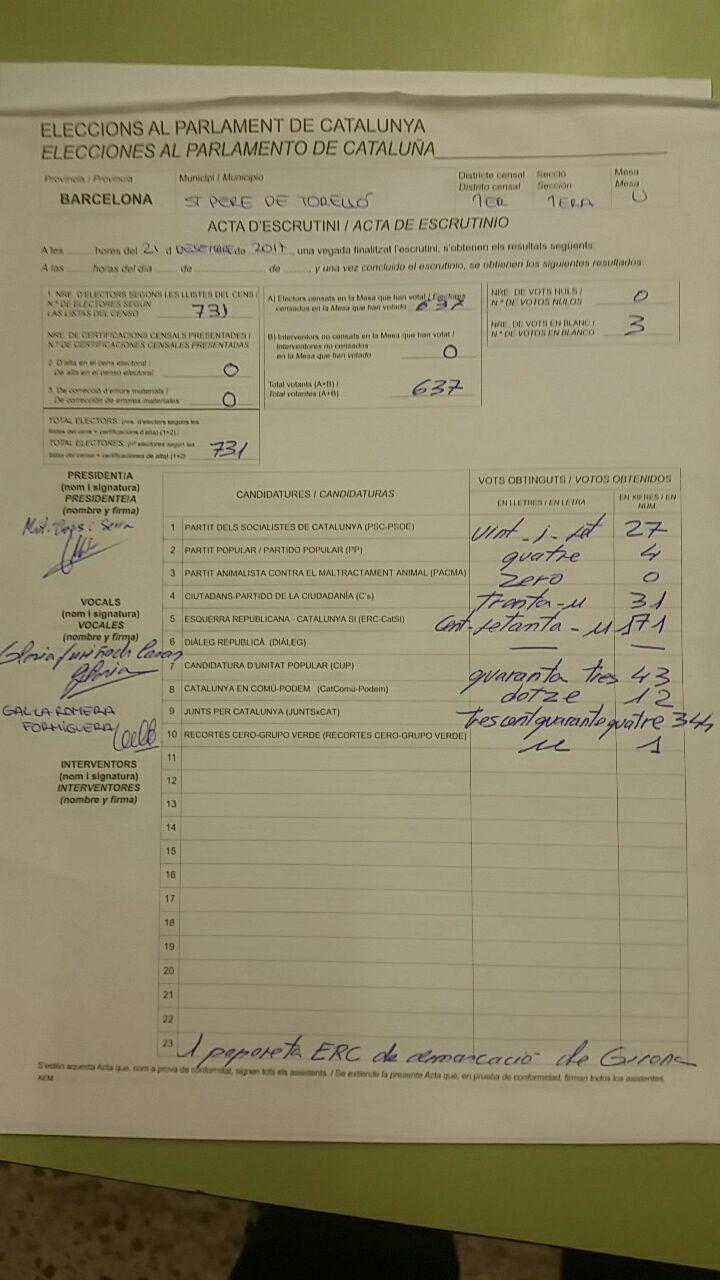 ELECCIONS AL PARLAMENT DE CATALUNYA
ELECCIONES AL PARLAMENTO DE CATALUÑA
Província / Provincia
Municipi / Municipio
Districte censal
Distrito censal
Secció
Sección
Mesa
Mesa
BARCELONA
ST PERE DE TORELLÓ
1ER
1ERA
U
ACTA D'ESCRUTINI / ACTA DE ESCRUTINIO
A les hores del 21 d DESEMBRE de 2017, una vegada finalitzat l'escrutini, s'obtenen els resultats següents:
A las horas del día de de , y una vez concluido el escrutinio, se obtienen los siguientes resultados:
1. NRE. D'ELECTORS SEGONS LES LLISTES DEL CENS /
N.º DE ELECTORES SEGÚN
LAS LISTAS DEL CENSO 731
NRE. DE CERTIFICACIONS CENSALS PRESENTADES /
N.º DE CERTIFICACIONES CENSALES PRESENTADAS
2. D'alta en el cens electoral /
De alta en el censo electoral: 0
3. De correcció d'errors materials /
De corrección de errores materiales: 0
TOTAL ELECTORS: (nre. d'electors segons les
llistes del cens + certificacions d'alta) (1+2) /
TOTAL ELECTORES: (nº electores según las
listas del censo + certificaciones de alta) (1+2) 731
A) Electors censats en la Mesa que han votat / Electores
censados en la Mesa que han votado 637
B) Interventors no censats en la Mesa que han votat /
Interventores no censados
en la Mesa que han votado 0
Total votants (A+B) /
Total votantes (A+B) 637
NRE. DE VOTS NULS /
N.º DE VOTOS NULOS 0
NRE. DE VOTS EN BLANC /
N.º DE VOTOS EN BLANCO 3
PRESIDENT/A
(nom i signatura)
PRESIDENTE/A
(nombre y firma)
Serra
VOCALS
(nom i signatura)
VOCALES
(nombre y firma)
Glòria
GAL·LA ROMERA
FORMIGUERA
INTERVENTORS
(nom i signatura)
INTERVENTORES
(nombre y firma)
CANDIDATURES / CANDIDATURAS
VOTS OBTINGUTS / VOTOS OBTENIDOS
EN LLETRES / EN LETRA
EN XIFRES / EN NUM.
1 PARTIT DELS SOCIALISTES DE CATALUNYA (PSC-PSOE) vint-i-set 27
2 PARTIT POPULAR / PARTIDO POPULAR (PP) quatre 4
3 PARTIT ANIMALISTA CONTRA EL MALTRACTAMENT ANIMAL (PACMA) zero 0
4 CIUTADANS-PARTIDO DE LA CIUDADANÍA (C's) tranta-u 31
5 ESQUERRA REPUBLICANA - CATALUNYA SI (ERC-CatSí) Cent-setanta-u 171
6 DIÀLEG REPUBLICÀ (DIÀLEG) — —
7 CANDIDATURA D'UNITAT POPULAR (CUP) quaranta tres 43
8 CATALUNYA EN COMÚ-PODEM (CatComú-Podem) dotze 12
9 JUNTS PER CATALUNYA (JUNTSxCAT) trescent quaranta quatre 344
10 RECORTES CERO-GRUPO VERDE (RECORTES CERO-GRUPO VERDE) u 1
11
12
13
14
15
16
17
18
19
20
21
22
23 1 papareta ERC de demarcació de Girona
S'estén aquesta Acta que, com a prova de conformitat, signen tots els assistents. / Se extiende la presente Acta que, en prueba de conformidad, firman todos los asistentes.
AEM